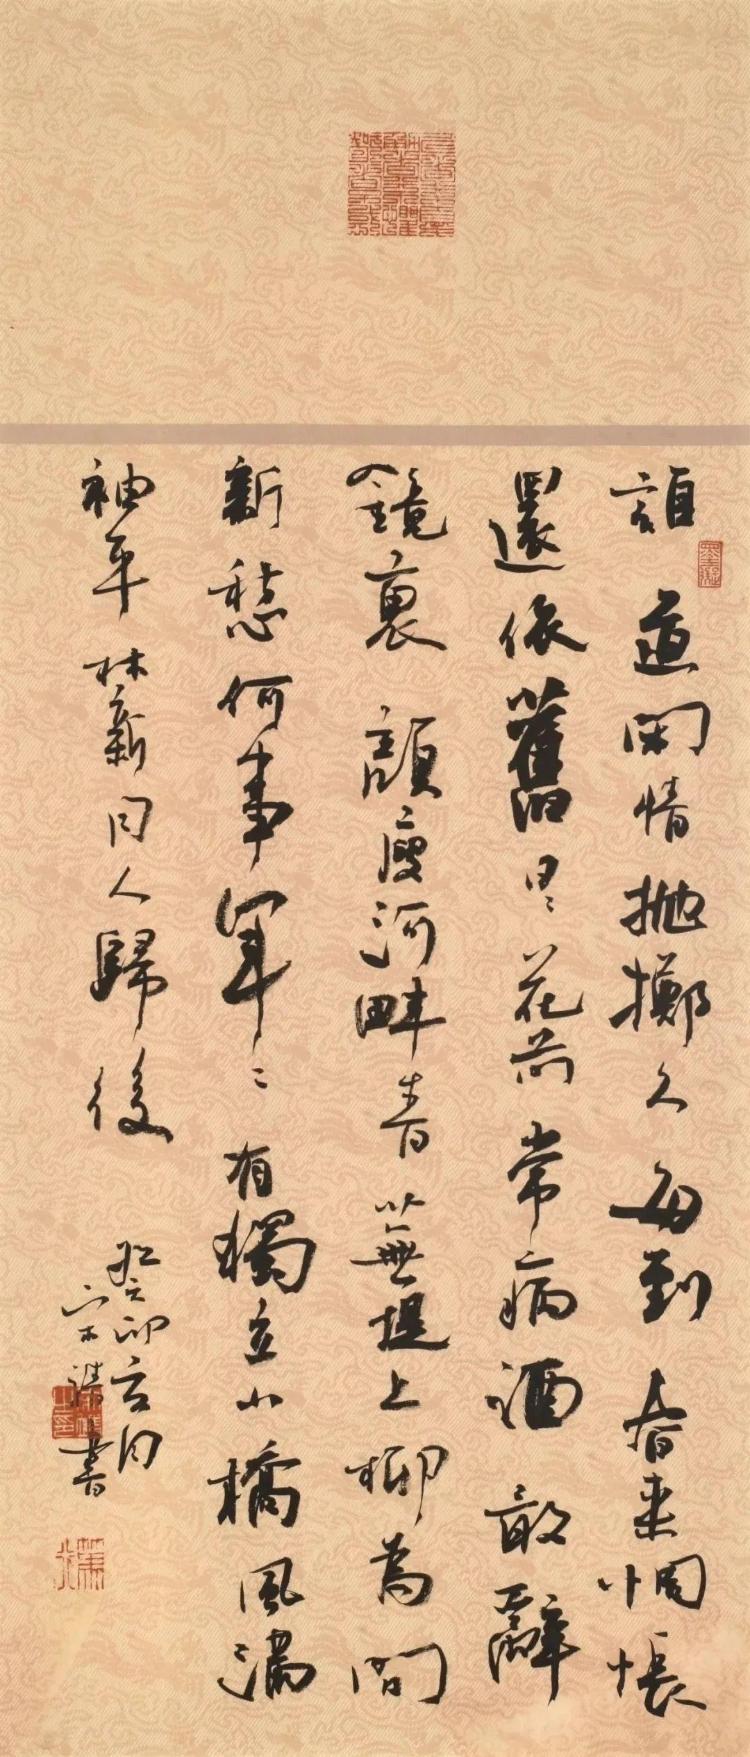 誰道閑情拋擲久每到春來惆悵
還依舊日々花前常病酒敢辭
鏡裏顏瘦河畔青蕪堤上柳為問
新愁何事年々有獨立小橋風滿
袖平林新月人歸後
癸卯月
宋書